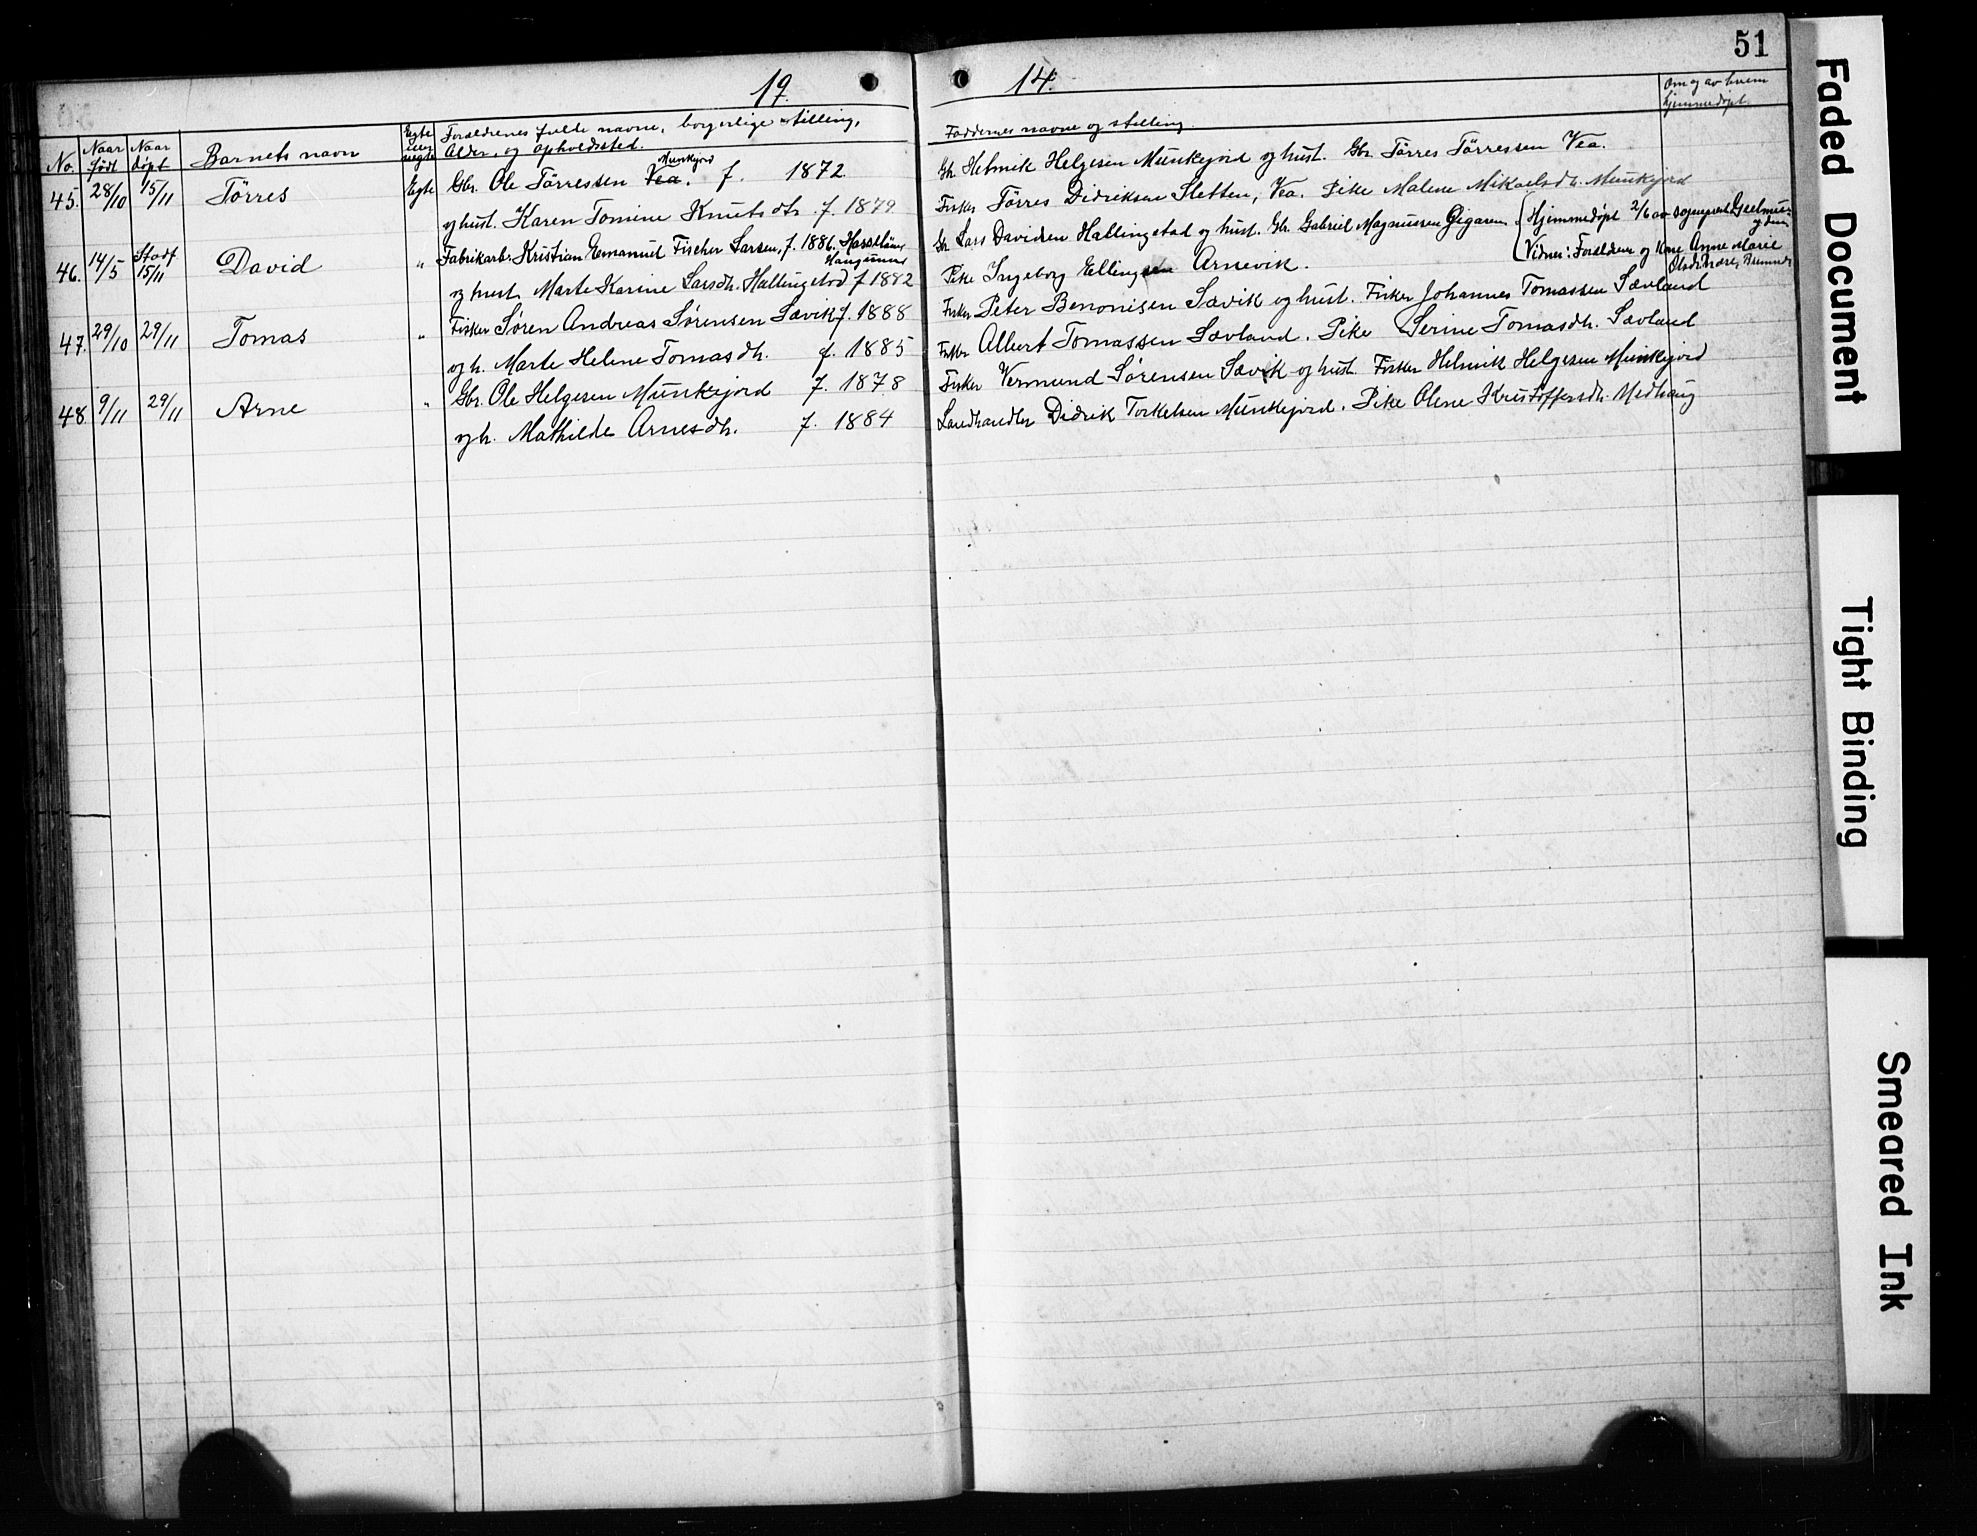 51
19 14.
No. Naar født Naar døpt Barnets navn Egte eller uegte Forældrenes fulde navne, borgerlige stilling, Alder, og opholdssted. Faddernes navne og stilling. Om og av hvem hjemmedøpt.
45. 28/10 15/11 Tørres Egte Gbr. Ole Tørressen Vea. Munkejord f. 1872
og hust. Karen Tomine Knutsdtr. f. 1879
Gbr. Helmik Helgesen Munkejord og hust. Gbr. Tørres Tørressen Vea.
Fisker Tørres Didriksen Sletten, Vea. Pike Malene Mikaelsdtr. Munkejord
46. 14/5 Stadf. 15/11 David " Fabrikarb. Kristian Emanuel Fischer Larsen, f. 1886. Haugesund
og hust. Marte Karine Larsdtr. Hallingstad f 1882
Gbr. Lars Davidsen Hallingstad og hust. Gbr. Gabriel Magnussen
Pike Ingeborg Ellingsen Arnevik.
Hjemmedøpt 2/6 av sogneprest Geelmuyden
Vidner: Forældrene og Kone Anne Marie
47. 29/10 29/11 Tomas " Fisker Søren Andreas Sørensen Sævik f. 1888
og h. Marte Helene Tomasdtr. f. 1885
Fisker Peter Benonisen Sævik og hust. Fisker Johannes Tomassen Sævland
Fisker Albert Tomassen Sævland. Pike Serine Tomasdtr. Sævland
48. 9/11 29/11 Arne " Gbr. Ole Helgesen Munkejord f. 1878
og h. Mathilde Arnesdtr. f. 1884
Fisker Vermund Sørensen Sævik og hust. Fisker Helmik Helgesen Munkejord
Landhandler Didrik Torkelsen Munkejord. Pike Olene Kristoffersdtr. Medhaug
Faded Document
Tight Binding
Smeared Ink